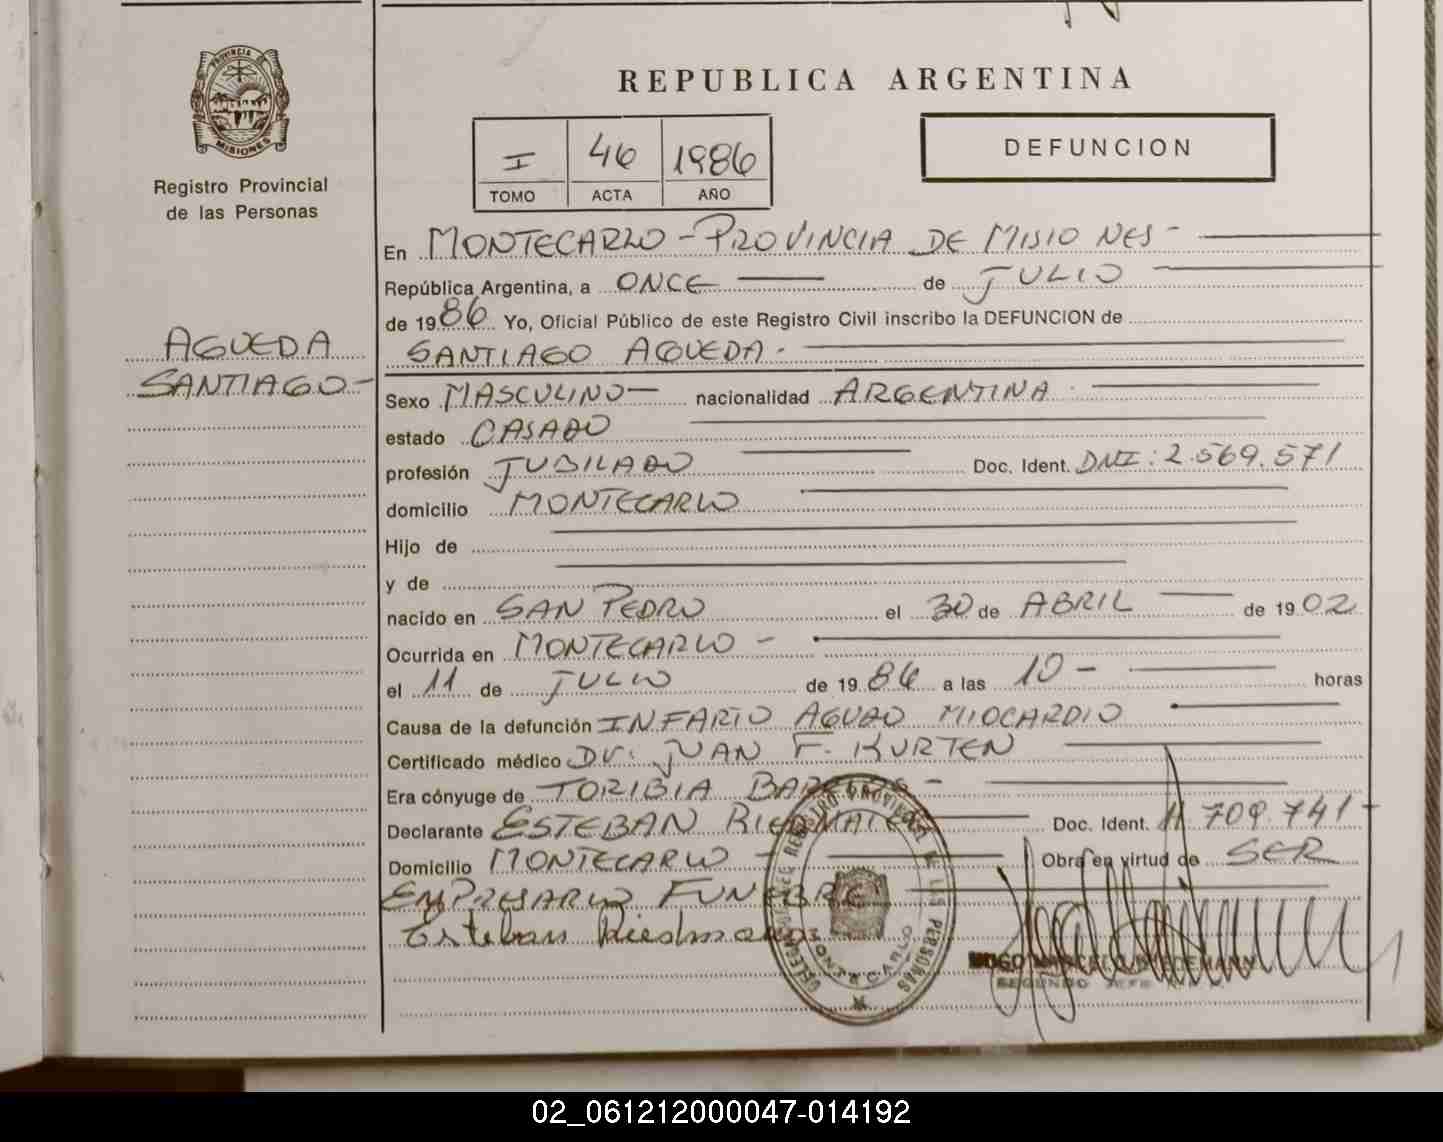 PROVINCIA DE
MISIONES
Registro Provincial
de las Personas
AGUEDA
SANTIAGO-
REPUBLICA ARGENTINA
I 46 1986
TOMO ACTA AÑO
DEFUNCION
En MONTECARLO - PROVINCIA DE MISIONES -
República Argentina, a ONCE de JULIO
de 1986 Yo, Oficial Público de este Registro Civil inscribo la DEFUNCION de
SANTIAGO AGUEDA.
Sexo MASCULINO nacionalidad ARGENTINA
estado CASADO
profesión JUBILADO Doc. Ident. DNI: 2.569.571
domicilio MONTECARLO
Hijo de
y de
nacido en SAN PEDRO el 30 de ABRIL de 1902
Ocurrida en MONTECARLO -
el 11 de JULIO de 1986 a las 10 - horas
Causa de la defunción INFARTO AGUDO MIOCARDIO
Certificado médico Dr. JUAN F. KURTEN
Era cónyuge de TORIBIA
Declarante ESTEBAN Doc. Ident. 11.709.741
Domicilio MONTECARLO - Obra en virtud de SER
EMPRESARIO FUNEBRE
Esteban
REGISTRO PROVINCIAL DE LAS PERSONAS
MONTECARLO
SEGUNDO JEFE
02_061212000047-014192